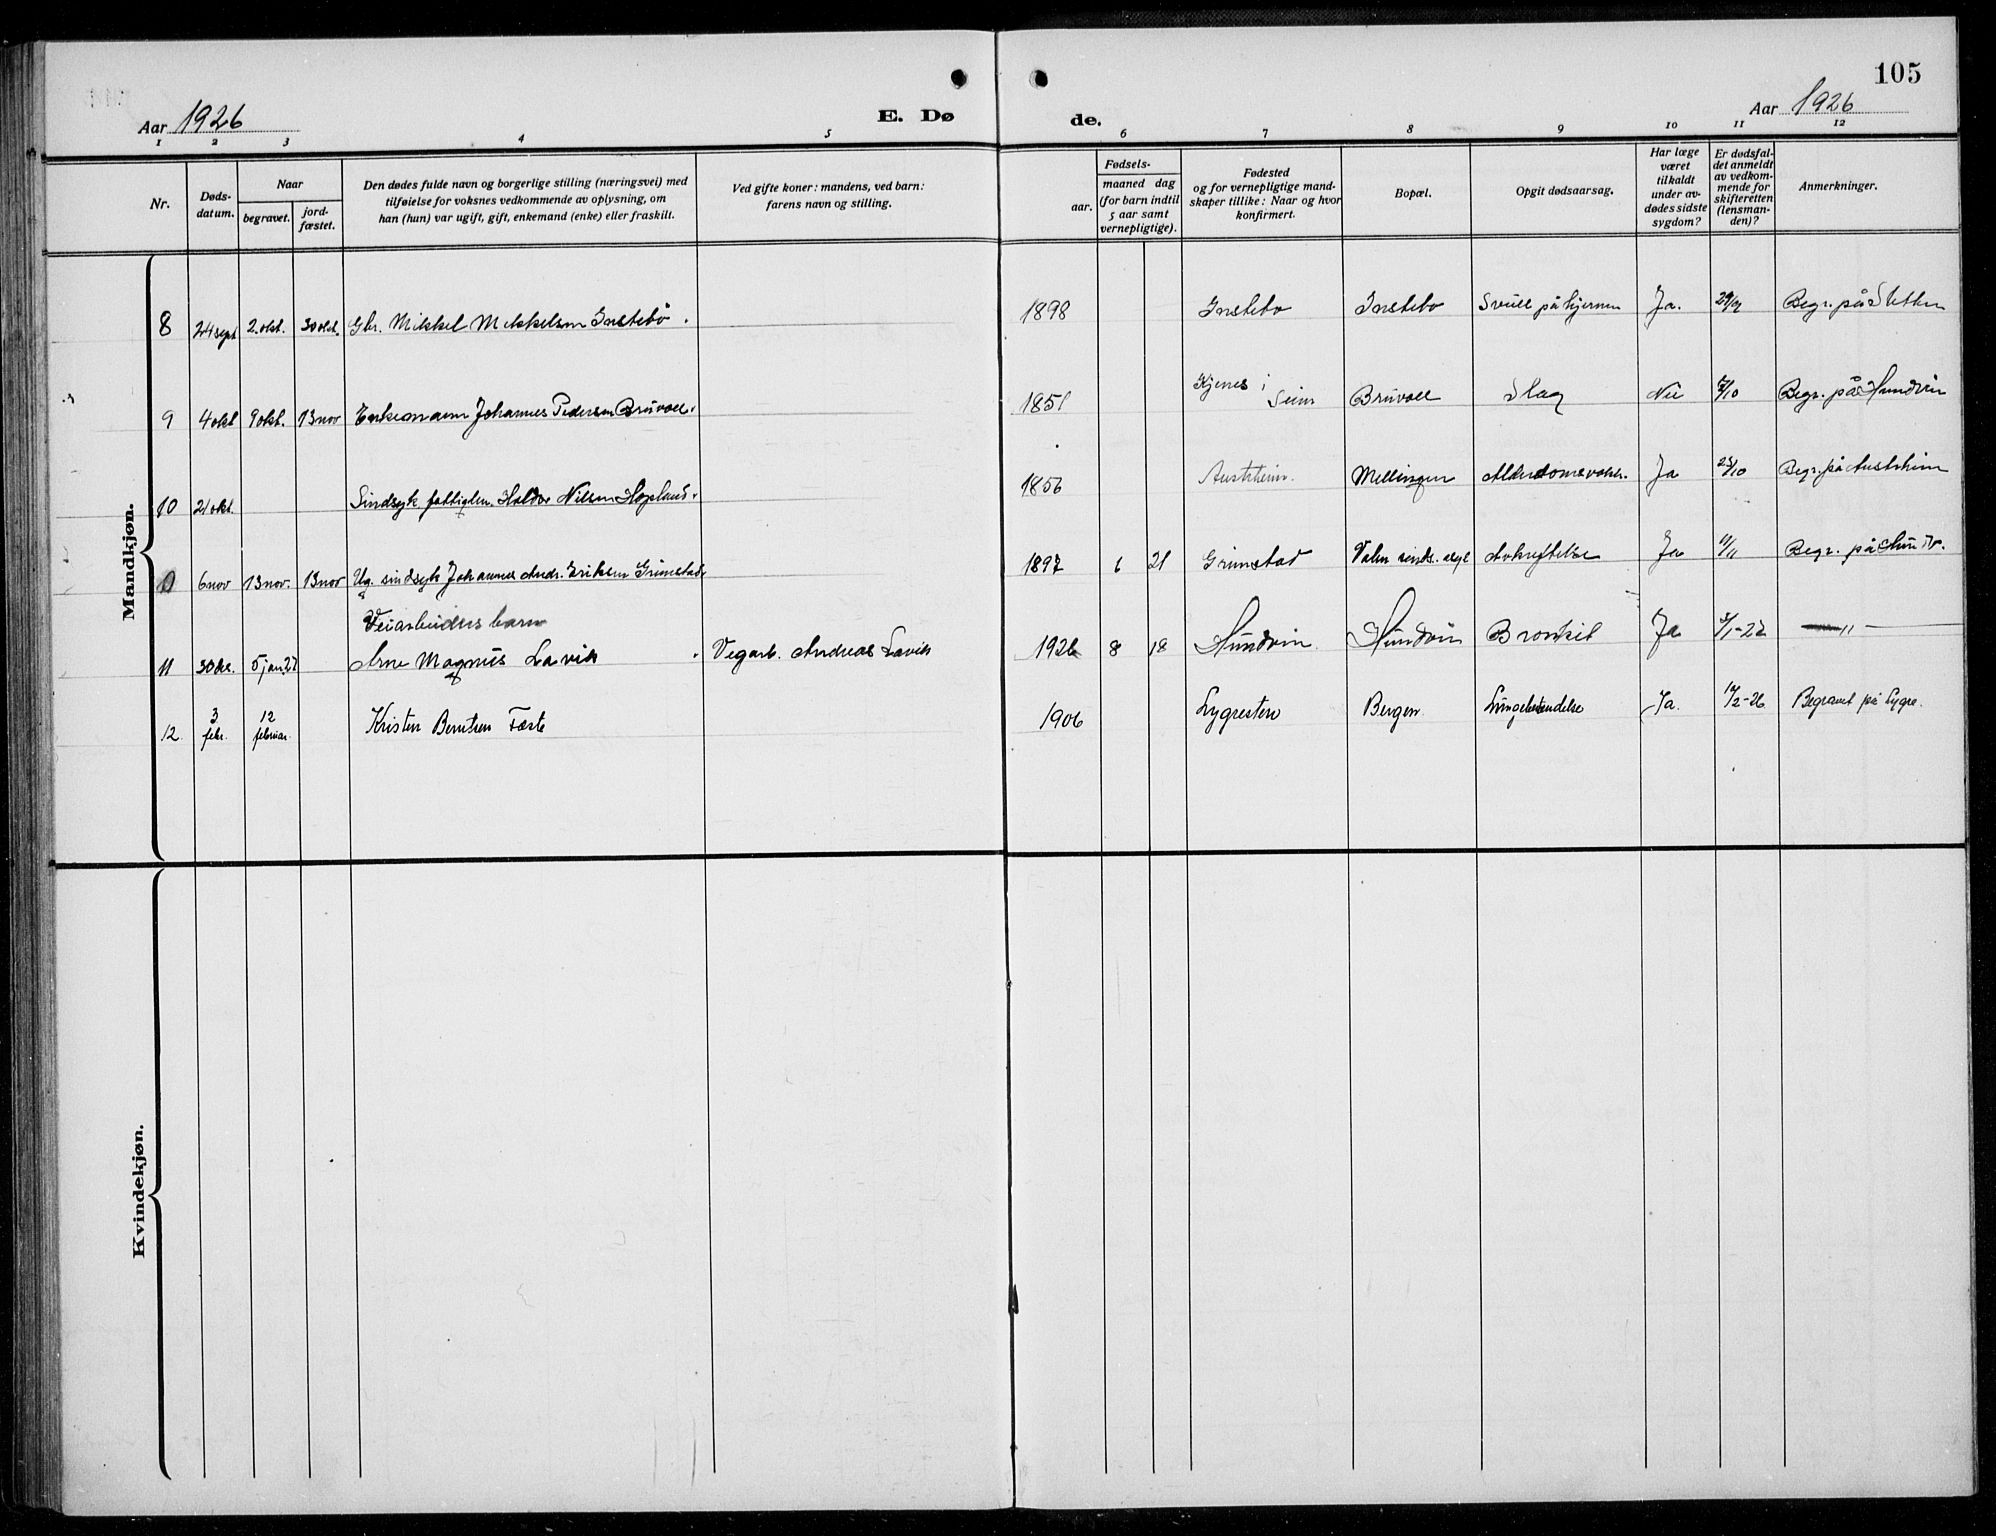 105
Aar 1926
E. Dø
de.
Aar 1926
1 2 3 4 5 6 7 8 9 10 11 12
Nr.
Døds-
datum.
Naar
begravet.
jord-
fæstet.
Den dødes fulde navn og borgerlige stilling (næringsvei) med
tilføielse for voksnes vedkommende av oplysning, om
han (hun) var ugift, gift, enkemand (enke) eller fraskilt.
Ved gifte koner: mandens, ved barn:
farens navn og stilling.
Fødsels-
aar.
maaned dag
(for barn indtil
5 aar samt
vernepligtige).
Fødested
og for vernepligtige mand-
skaper tillike: Naar og hvor
konfirmert.
Bopæl.
Opgit dødsaarsag.
Har læge
været
tilkaldt
under av-
dødes sidste
sygdom?
Er dødsfal-
det anmeldt
av vedkom-
mende for
skifteretten
(lensman-
den)?
Anmerkninger.
Mandkjøn.
8 24 sept 2. okt. 30 okt. Gbr. Mikkel Mikkelsen Instebø. 1898 Instebø Instebø Svull på hjernen Ja. 29/9 Begr. på Sletten
9 4 okt 9 okt. 13 nov Enkemann Johannes Pedersen Bruvoll. 1851 Kjenes i Seim Bruvoll Slag Nei 7/10 Begr. på Hundvin
10 21 okt. Sindsyk fattiglem. Haldor Nilsen Hopland. 1856 Austrheim. Mellingen Alderdomsvakh. Ja 25/10 Begr. på Austrheim
6 nov 13 nov. 13 nov Ug. sindsyk Johannes Andr. Eriksen Grimstad 1897 6 21 Grimstad Valen sinds. asyl Avkreftelse Ja 11/11 Begr. på Hundv.
Veiarbeiders barn
11 30 des. 5 jan. 27 Arne Magnus Lavik Vegarb. Andreas Lavik 1926 8 18 Hundvin Hundvin Bronkit Ja 3/1-27 — " —
12. 3 febr. 12 februar Kristen Berntsen Fæste 1906 Lygresten Bergen Lungebetendelse Ja. 12/2-26 Begravet på Lygre.
Kvindekjøn.